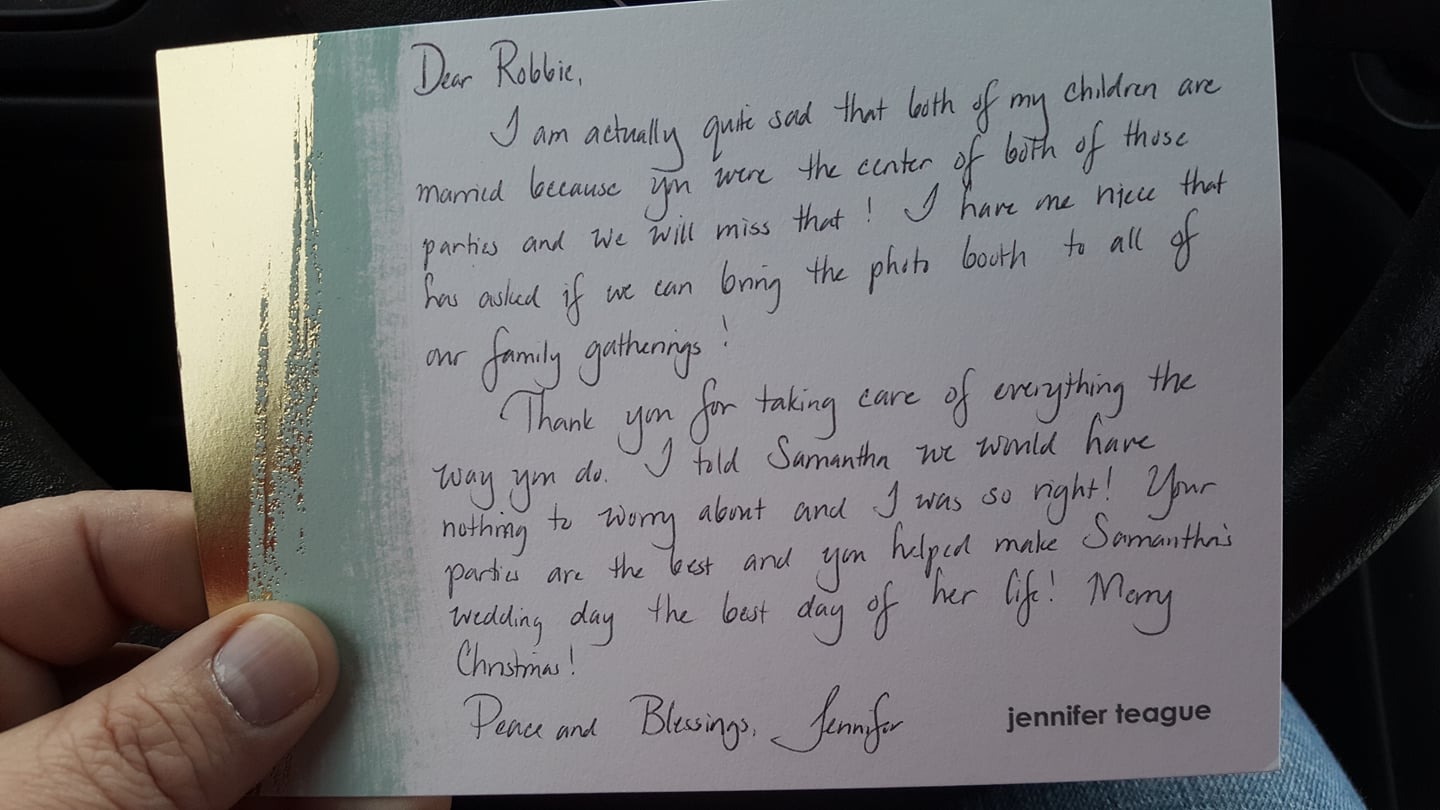 Dear Robbie,
I am actually quite sad that both of my children are
married because you were the center of both of those
parties and we will miss that! I have one niece that
has asked if we can bring the photo booth to all of
our family gatherings!
Thank you for taking care of everything the
way you do. I told Samantha we would have
nothing to worry about and I was so right! Your
parties are the best and you helped make Samantha's
wedding day the best day of her life! Merry
Christmas!
Peace and Blessings, Jennifer
jennifer teague